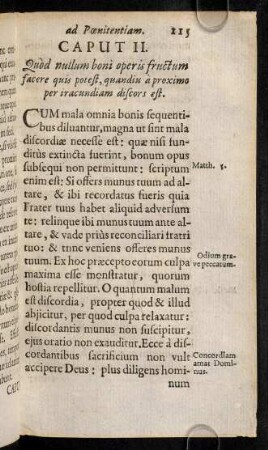 ad Pœnitentiam. 115
CAPUT II.
Quòd nullum boni operis fructum
facere quis potest, quandiu à proximo
per iracundiam discors est.
CUM mala omnia bonis sequenti-
bus diluantur, magna ut sint mala
discordiæ necesse est: quæ nisi fun-
ditùs extincta fuerint, bonum opus
subsequi non permittunt: scriptum
Matth. 5.
enim est: Si offers munus tuum ad al-
tare, & ibi recordatus fueris quia
Frater tuus habet aliquid adversum
te: relinque ibi munus tuum ante al-
tare, & vade priùs reconciliari fratri
tuo: & tunc veniens offeres munus
tuum. Ex hoc præcepto eorum culpa
Odium gra-
ve peccatum.
maxima esse monstratur, quorum
hostia repellitur. O quantum malum
est discordia, propter quod & illud
abjicitur, per quod culpa relaxatur:
discordantis munus non suscipitur,
ejus oratio non exauditur. Ecce à dis-
cordantibus sacrificium non vult
Concordiam
amat Domi-
nus.
accipere Deus: plus diligens homi-
num